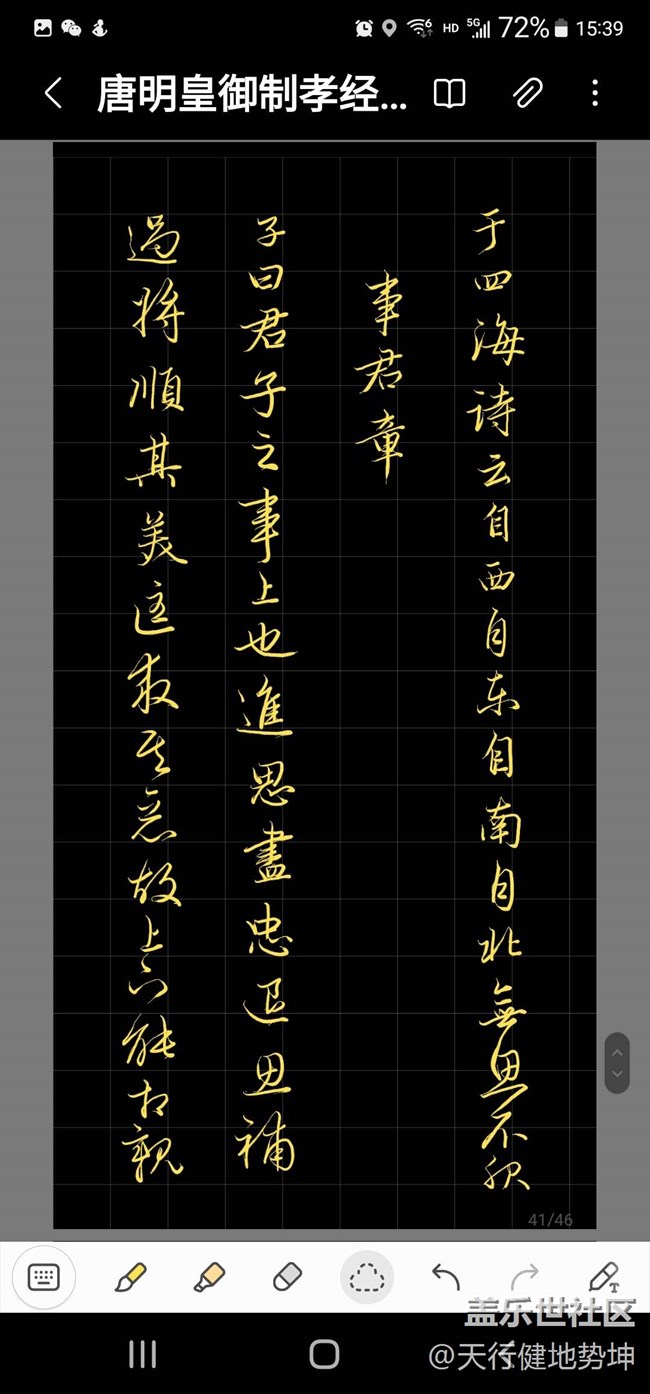 HD 5G 72% 15:39
唐明皇御制孝经...
于四海诗云自西自东自南自北無思不服
事君章
子曰君子之事上也進思盡忠退思補
過将順其美匡救其恶故上下能相親
41/46
盖乐世社区
@天行健地势坤